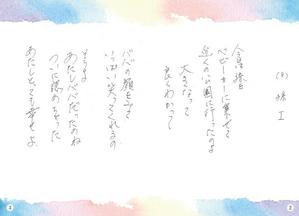 孫 Ⅰ
今日孫を
ベビーカーに乗せて
近くの公園に行ったのよ
大きくなって
良くわかって
ババの顔をみて
いっぱい笑ってくれるの
そうよ
あたしババだったのね
ついに認めちゃった
あたしとっても幸せよ
2